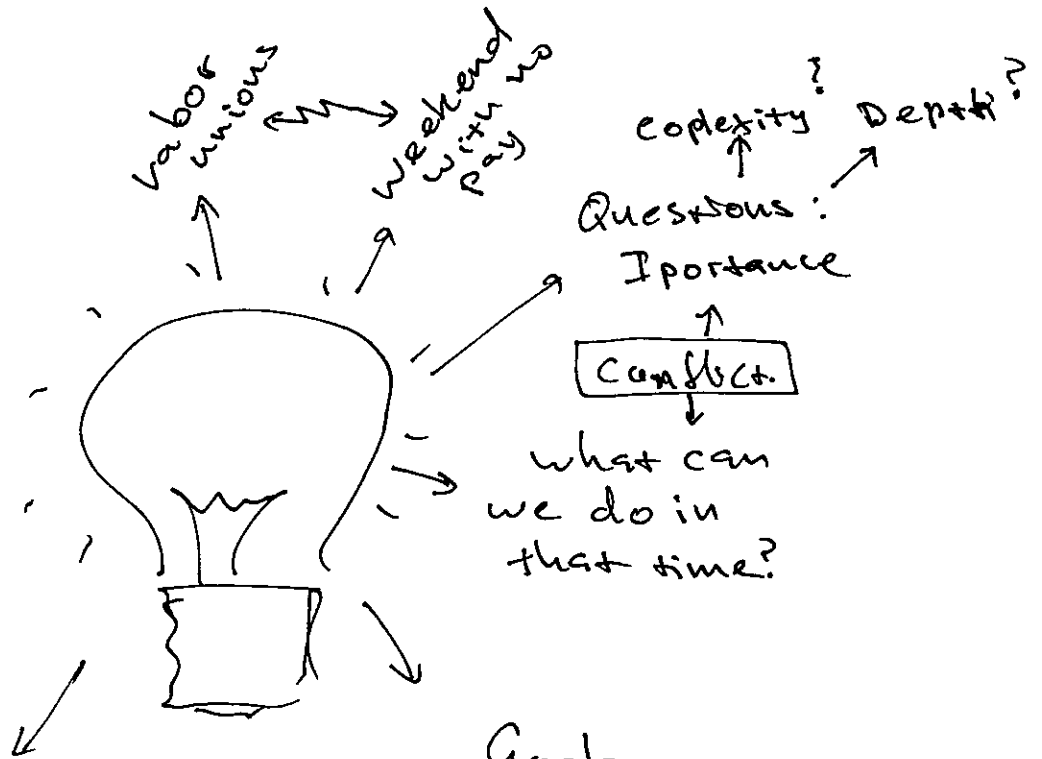 vabor
unions
weekend
with no
pay
Coplexity?
Depth?
Questions:
Iportance
Conflict.
what can
we do in
that time?